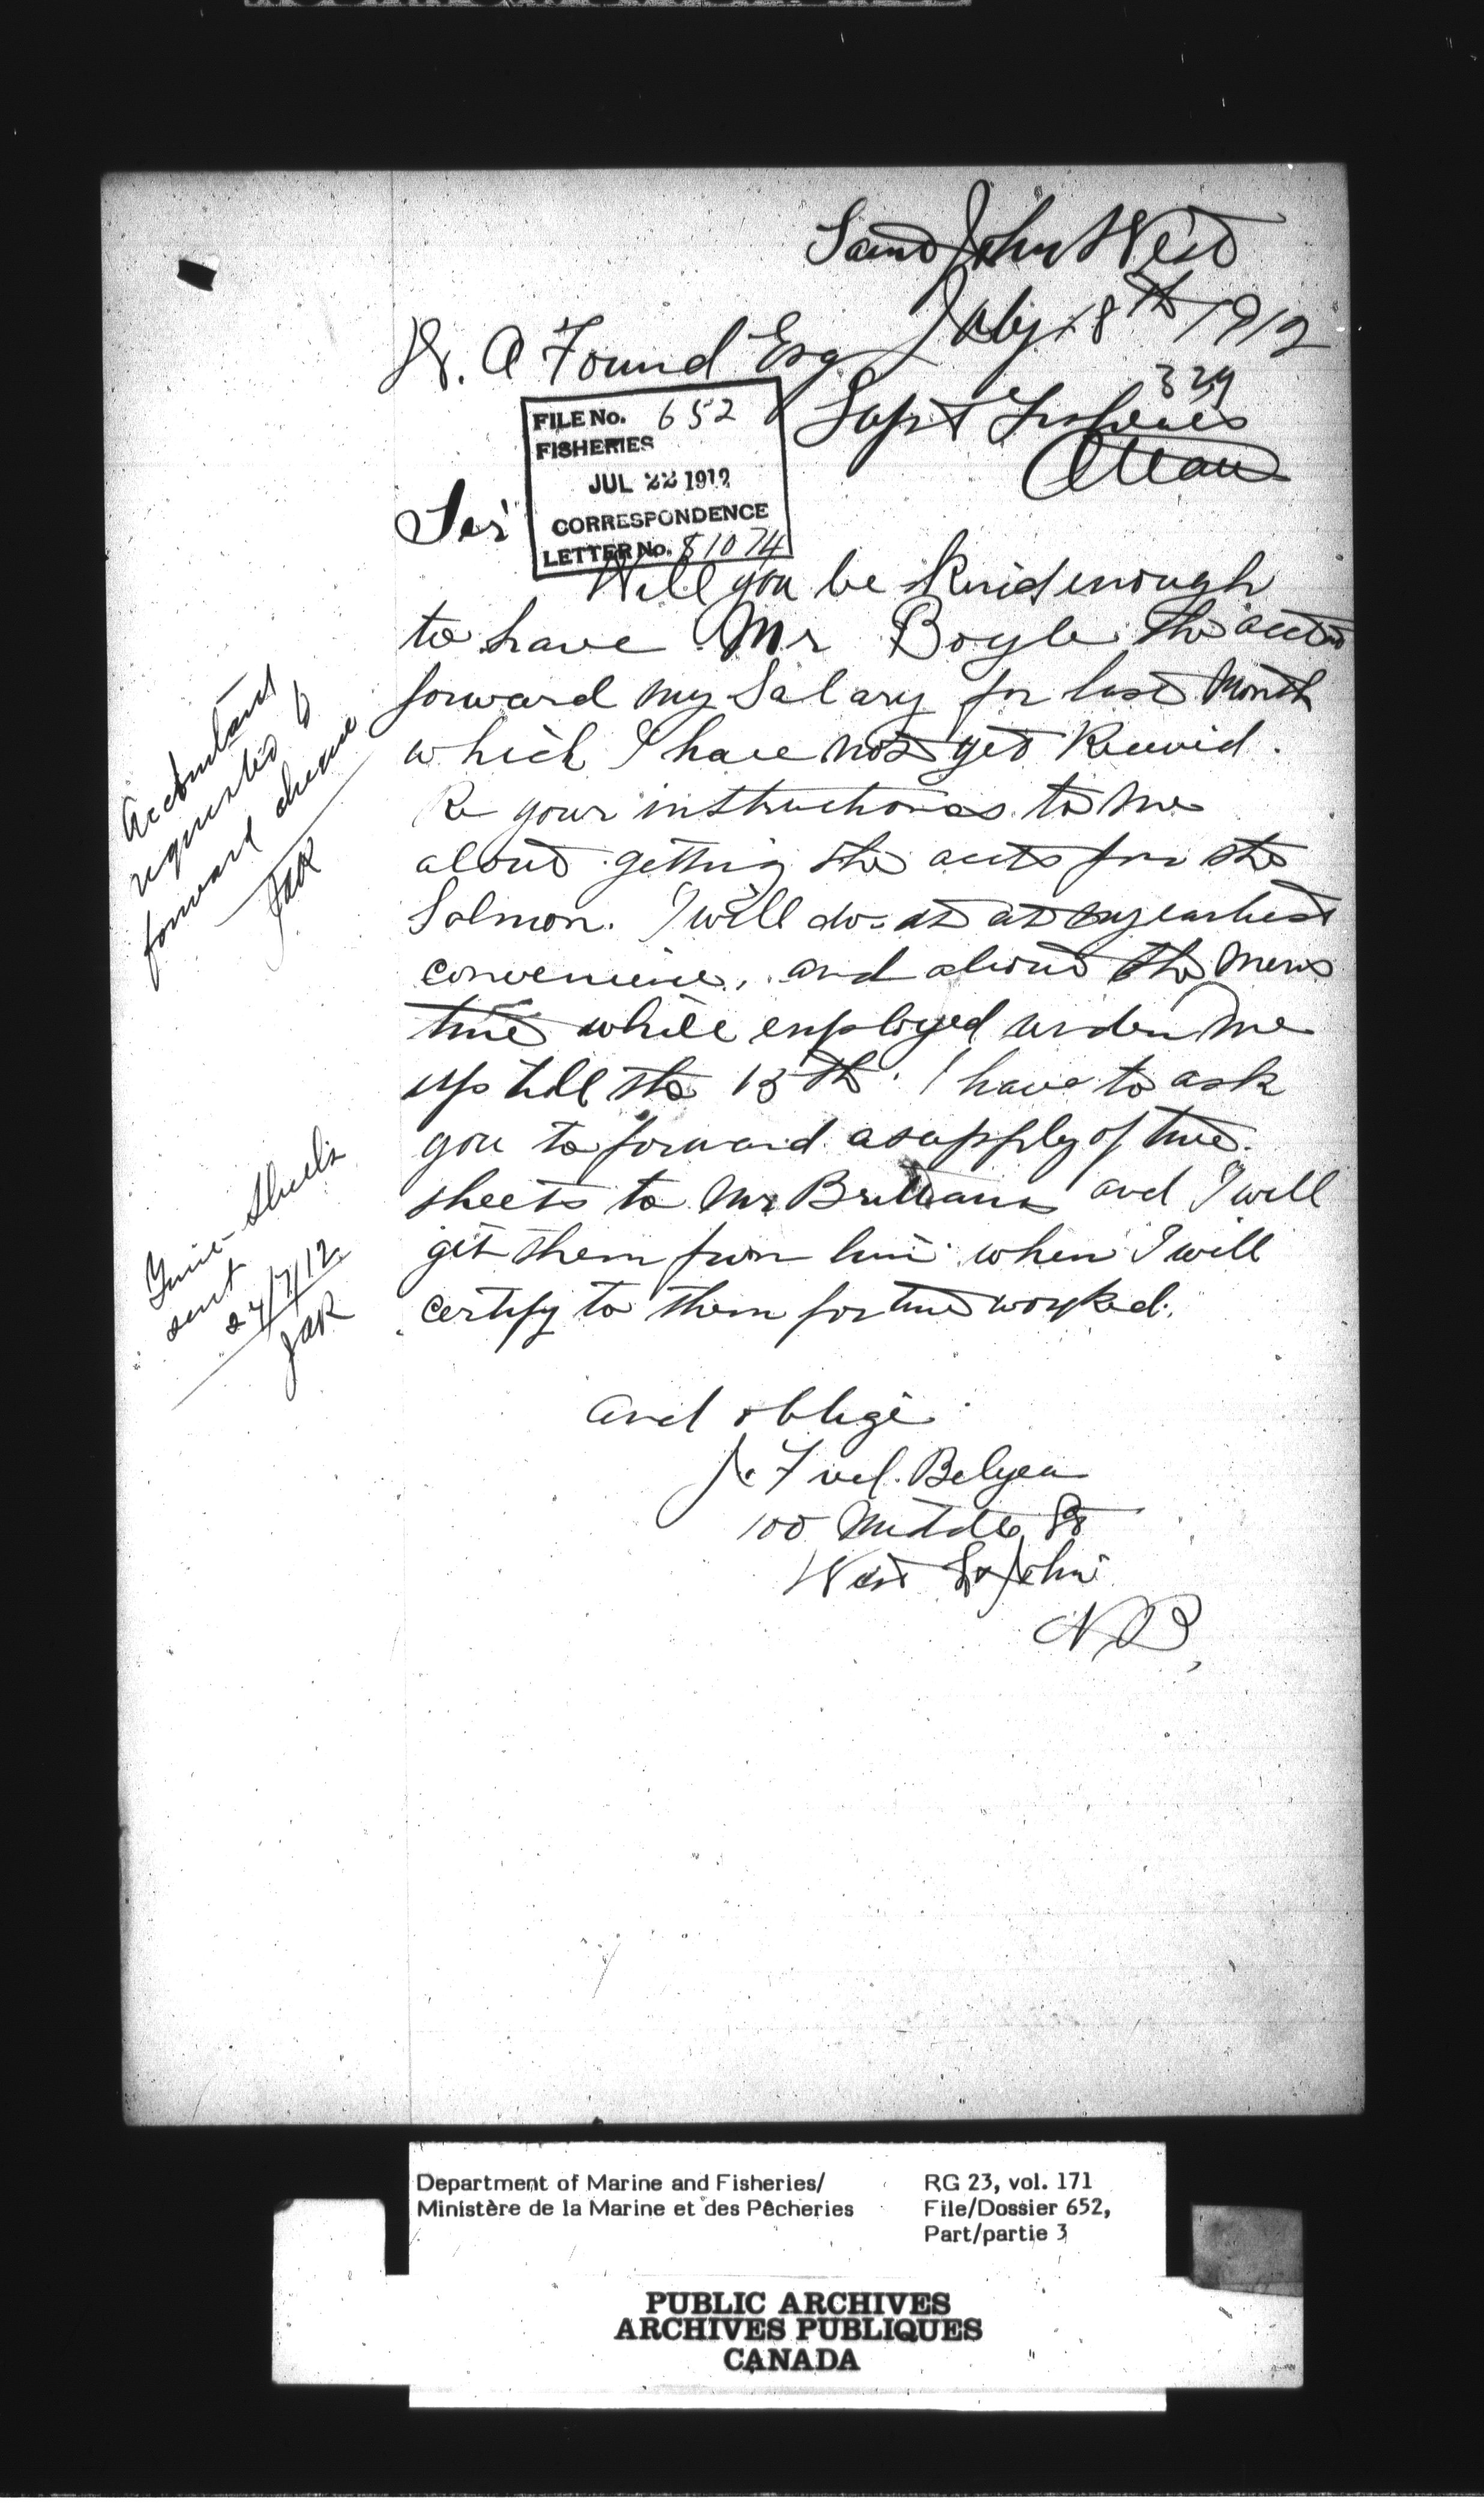 Saint John West
July 18th 1912
W. A Found Esq
329
Supt Fisheries
Ottawa
FILE No. 652
FISHERIES
JUL 22 1912
CORRESPONDENCE
LETTER No. 81074
Sir
Will you be kind enough
to have Mr Boyle the acctnt
forward my Salary for last Month
which I have not yet Received.
Re your instructions to me
about getting the accts for the
Salmon. I will do it at my earliest
convenience, and about the mens
time while employed under me
up till the 15th. I have to ask
you to forward a supply of time
sheets to Mr Brittain and I will
get them from him when I will
certify to them for time worked.
and oblige
J. Fred. Belyea
100 Middle St
West St John
N B,
Accountant
requested to
forward cheque
JAR
Time-Sheets
sent
27/7/12.
JAR
Department of Marine and Fisheries/
Ministère de la Marine et des Pêcheries
RG 23, vol. 171
File/Dossier 652,
Part/partie 3
PUBLIC ARCHIVES
ARCHIVES PUBLIQUES
CANADA